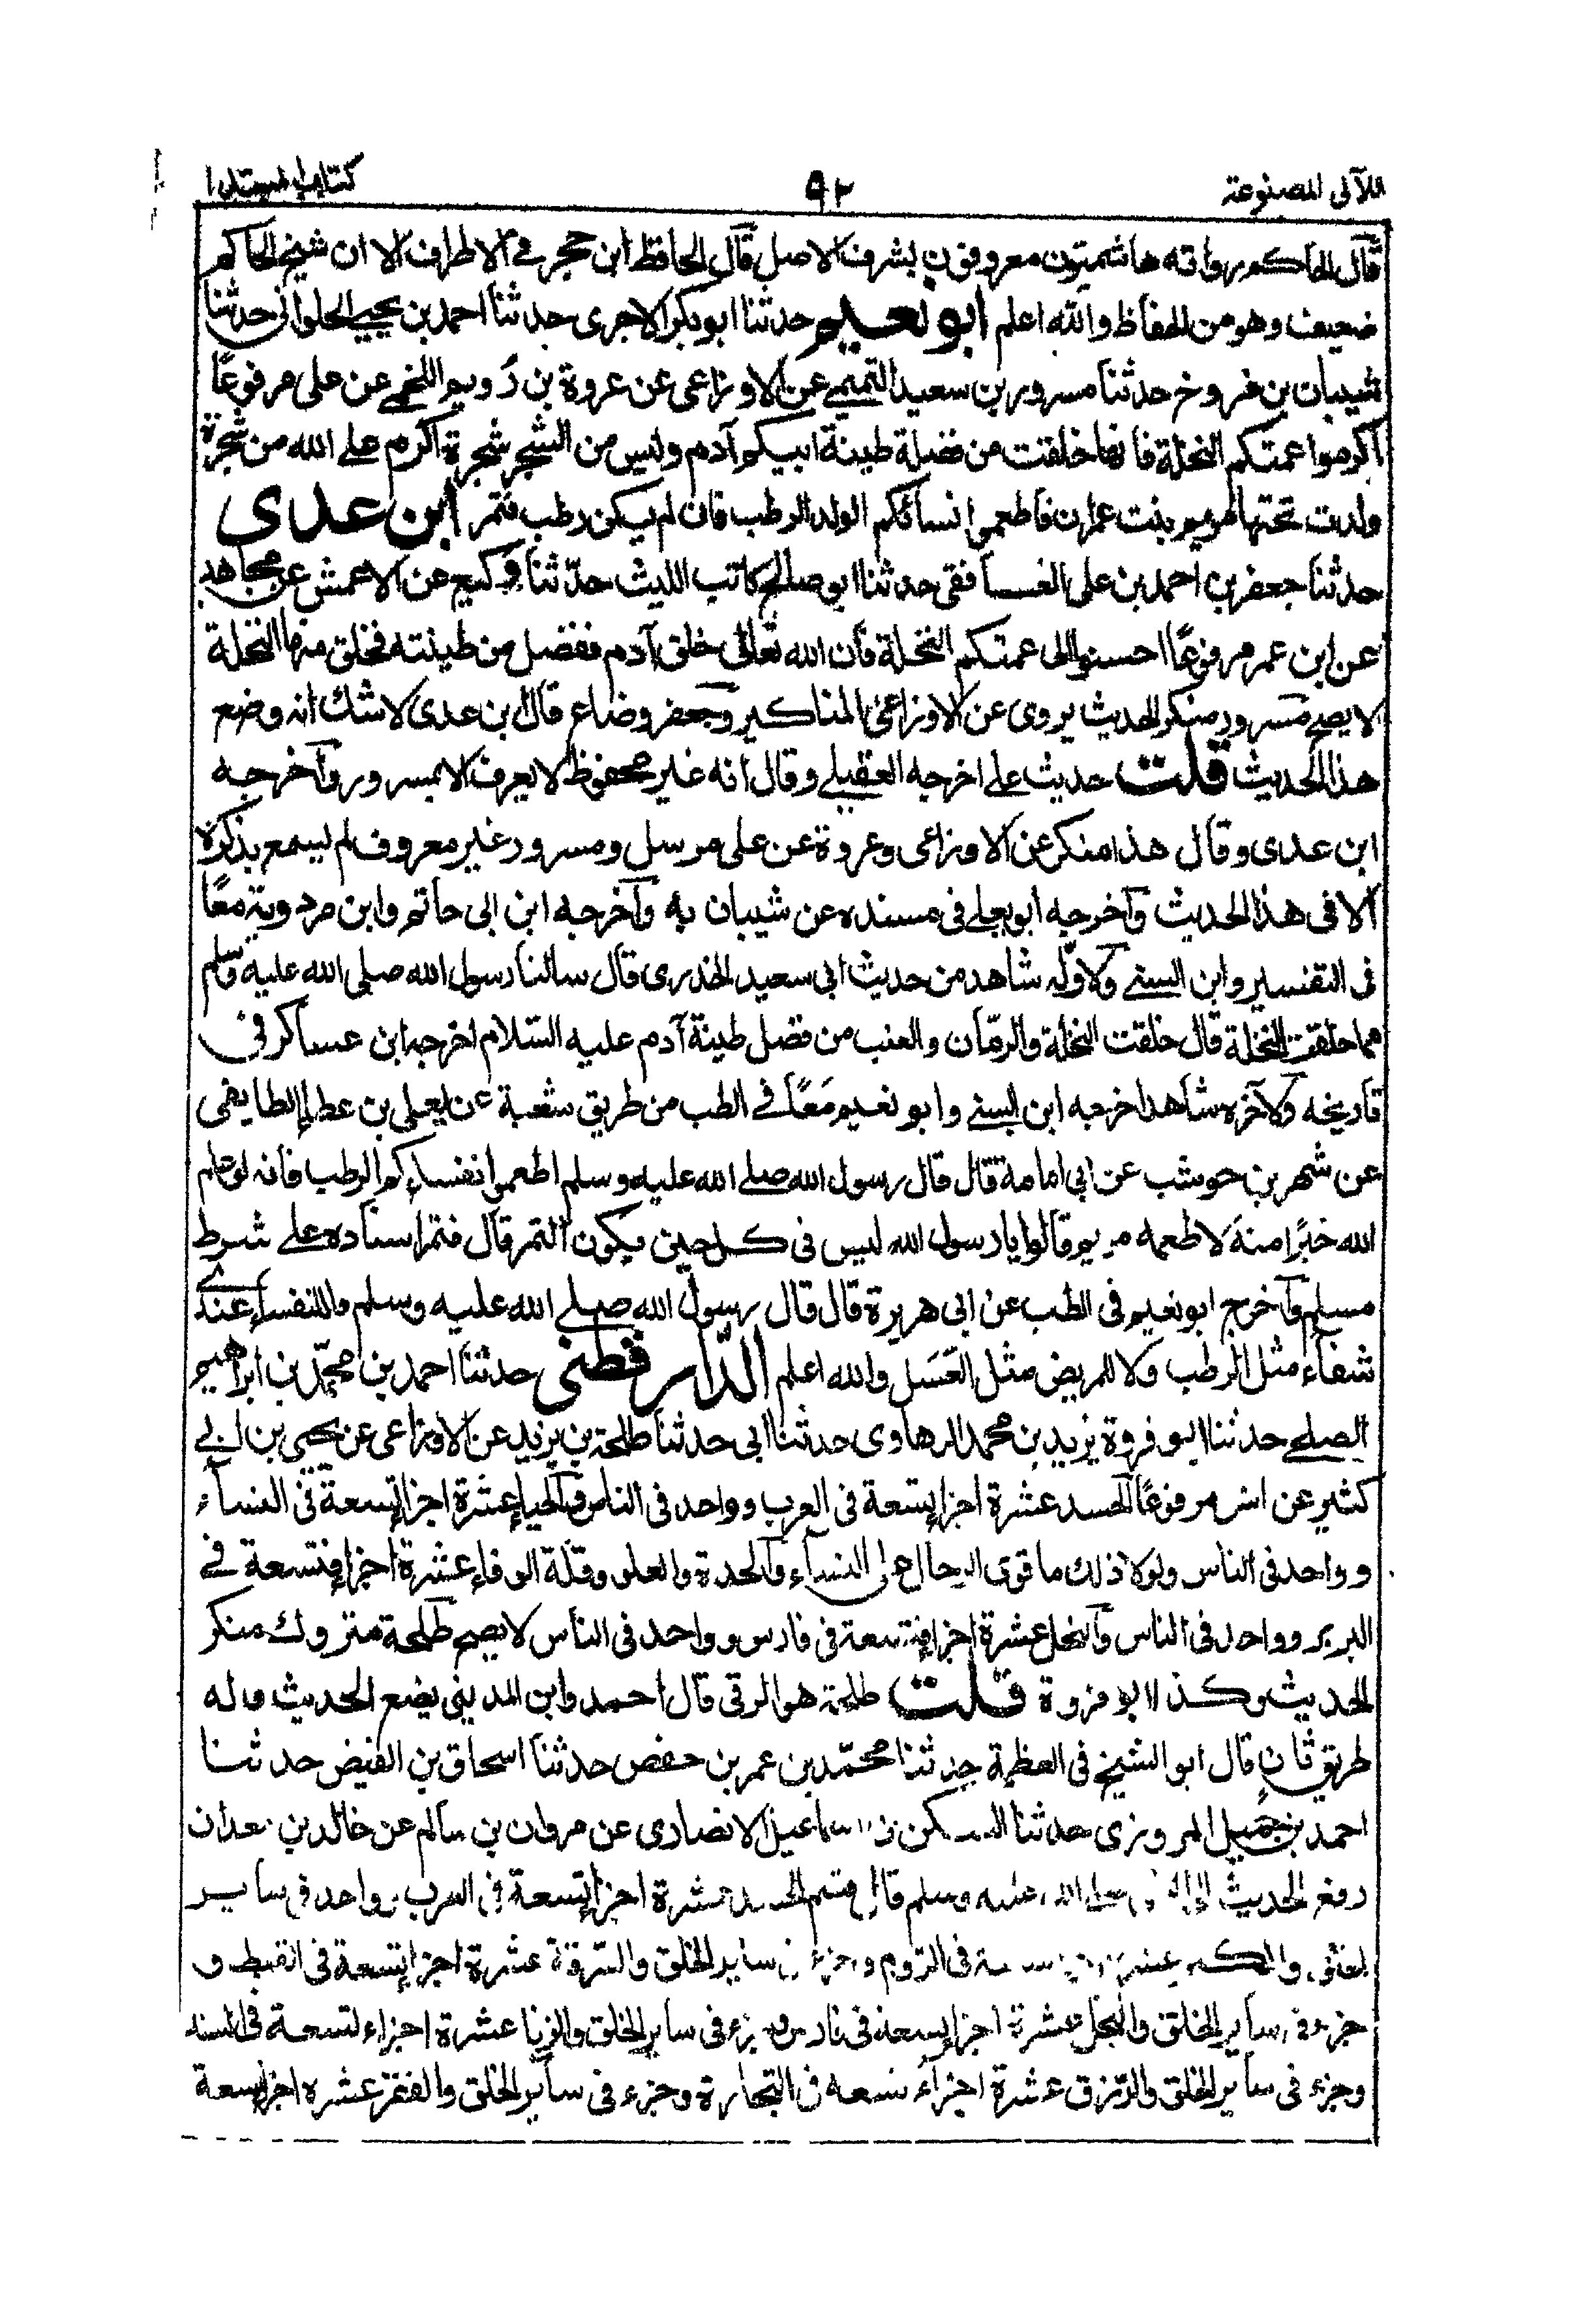 اللآلى المصنوعة
٩٢
كتاب المبتدا
قال الحاكم رواته هاشميون معروفون بشرف الاصل قال الحافظ ابن حجر في الاطراف الا ان شيخ الحاكم
ضعيف وهو من الحفاظ والله اعلم ابو نعيم حدثنا ابو بكر الاجرى حدثنا احمد بن يحيى الحلوانى حدثنا
شيبان بن فروخ حدثنا مسرور بن سعيد التميمي عن الاوزاعى عن عروة بن رويم اللخمي عن على مرفوعًا
اكرموا عمتكم النخلة فانها خلقت من فضلة طينة ابيكم آدم وليس من الشجر شجرة اكرم على الله من شجرة
ولدت تحتها مريم بنت عمران فاطعموا نسائكم الولد الرطب فان لم يكن رطب فتمر ابن عدى
حدثنا جعفر بن احمد بن على الغسافقى حدثنا ابو صالح كاتب الليث حدّثنا وكيع عن الاعمش عن مجاهد
عن ابن عمر مرفوعًا احسنوا الى عمتكم النخلة فان الله تعالى خلق آدم ففضل من طينته فخلق منها النخلة
لا يصح مسرور منكر الحديث يروى عن الاوزاعى المناكير وجعفر وضاع قال ابن عدى لا شك انه وضع
هذا الحديث قلت حديث على اخرجه العقيلي وقال انه غير محفوظ لا يعرف الا بمسرور واخرجه
ابن عدى وقال هذا منكر عن الاوزاعى وعروة عن على مرسل ومسرور غير معروف لم يسمع بذكره
الا فى هذا الحديث وآخرجه ابو يعلے فى مسنده عن شيبان به وآخرجه ابن ابى حاتم وابن مردوية معًا
فى التفسير وابن السنے ولاوّله شاهد من حديث ابى سعيد الخدرى قال سالنا رسول الله صلى الله عليه وسلم
مما خلقت النخلة قال خلقت النخلة والرمّان والعنب من فضل طينة آدم عليه السّلام اخرجه ابن عساكر فى
تاريخه ولآخره شاهد اخرجه ابن السنے وابو نعيم مَعًا فے الطب من طريق شعبة عن يعلى بن عطاء الطايفى
عن شهر بن حوشب عن ابى امامة قال قال رسول الله صلے الله عليه وسلم اطعموا نفساءكم الرطب فانه لو علم
الله خيرًا منه لاطعمه مريم قالوا يا رسول الله ليس فى كل حين يكون التمر قال فتمر اسناده على شرط
مسلم وآخرج ابو نعيم فى الطب عن ابى هريرة قال قال رسول الله صلے الله عليه وسلم ما للنفساء عندے
شفآء مثل الرطب ولا للمريض مثل العَسَل والله اعلم الدّارقطنى حدثنا احمد بن محمّد بن ابراهيم
الصلے حدثنا ابو فروة يزيد بن محمد الرهاوى حدثنا ابى حدثنا طلحة بن يزيد عن الاوزاعى عن يحيى بن ابے
كثير عن انس مرفوعًا الحسد عشرة اجزاء تسعة فى العرب وواحد فى الناس والحياء عشرة اجزاء تسعة فى النسآء
وواحد فى الناس ولولا ذلك ما قوى الرجال على النسآء والحدة والعلو وقلّة الوفاء عشرة اجزاء فتسعة فے
البربر وواحد فى الناس والبخل عشرة اجزاء فتسعة فى فارس وواحد فى الناس لا يصح طلحة متروك منكر
الحديث وكذا ابو فروة قلت طلحة هو الرقى قال احمد وابن المدينى يضع الحديث وله
طريق ثان قال ابو الشيخ فى العظمة حدثنا محمّد بن عمر بن حفص حدثنا اسحاق بن الفيض حدثنا
احمد بن جميل المروزى حدثنا السكن بن اسماعيل الانصارى عن مروان بن سالم عن خالد بن معدان
رفع الحديث الى النبى صلى الله عليه وسلم قال قسم الحسد عشرة اجزاء تسعة فى العرب وواحد فى ساير
الخلق والكبر عشرة اجزاء تسعة فى الروم وجزء فى ساير الخلق والسّرقة عشرة اجزاء تسعة فى القبط و
جزء فى ساير الخلق والبخل عشرة اجزاء تسعة فى فارس وجزء فى ساير الخلق والزنا عشرة اجزاء تسعة فى السند
وجزء فى ساير الخلق والرّزق عشرة اجزاء تسعة فى التجارة وجزء فى ساير الخلق والفقر عشرة اجزاء تسعة